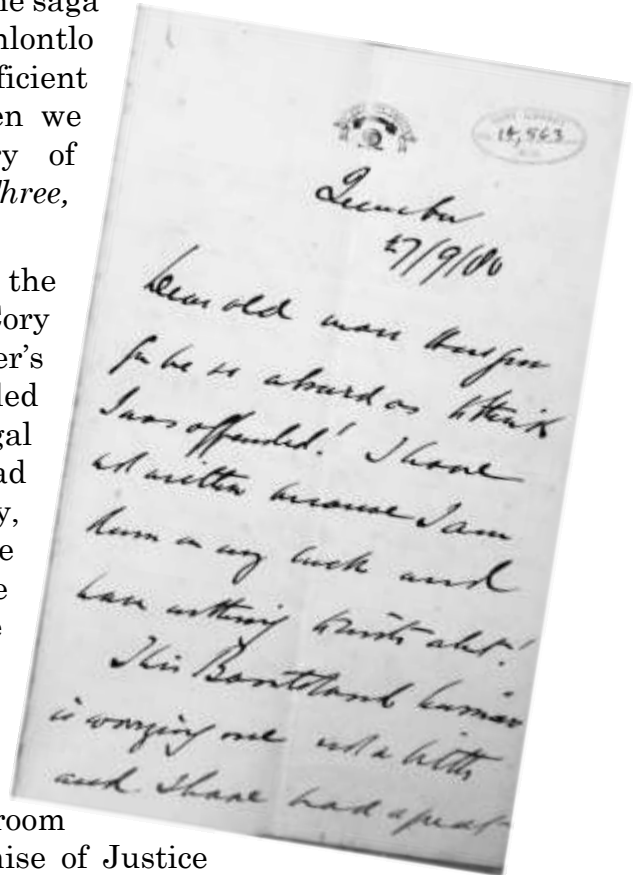 le saga
nlontlo
ficient
en we
ry of
hree,
the
Cory
er's
led
gal
ad
y,
e
e
e
room
nise of Justice
14,563
Qumbu
27/9/80
Dear old man
be so absurd as to think
I was offended! I have
not written because I am
down on my luck and
have nothing to write abt!
This Basutoland business
is worrying me not a little
and I have had a great